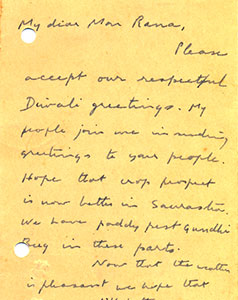 My dear Mon Rana,
Please
accept our respectful
Diwali greetings. My
people join me in sending
greetings to your people.
Hope that crop prospect
is now better in Saurastra.
We have paddy pest Gundhi
Bug in these parts.
Now that the weather
is pleasant we hope that